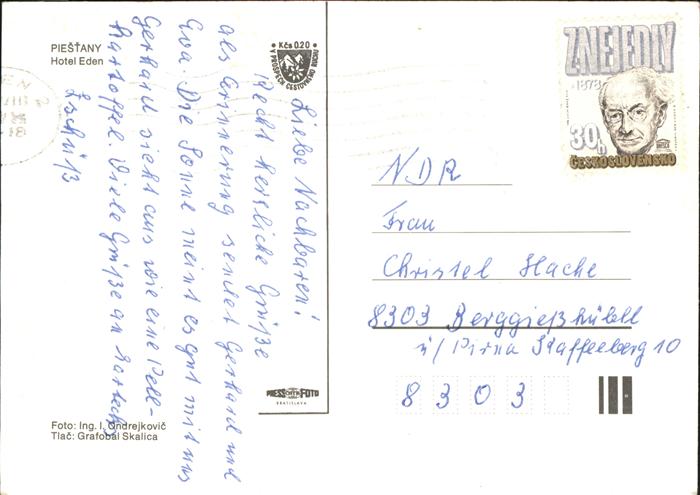 PIEŠŤANY
Hotel Eden
Kčs 0.20
V PROSPĚCH CESTOVNÉHO RUCHU
Liebe Nachbaren!
Recht herzliche Grüße
als Erinnerung sendet Gerhard und
Eva. Die Sonne meint es gut mit uns
Gerhard sieht aus wie eine Pell-
kartoffel. Viele Grüße an
Zschüß
Foto: Ing. I. Ondrejkovič
Tlač: Grafobal Skalica
PRESSFOTO
BRATISLAVA
ZNEJEDLÝ
1878
30h
ČESKOSLOVENSKO
NDR
Frau
Christel Hache
8303 Berggießhübell
ü/Pirna Staffeeberg 10
8 3 0 3